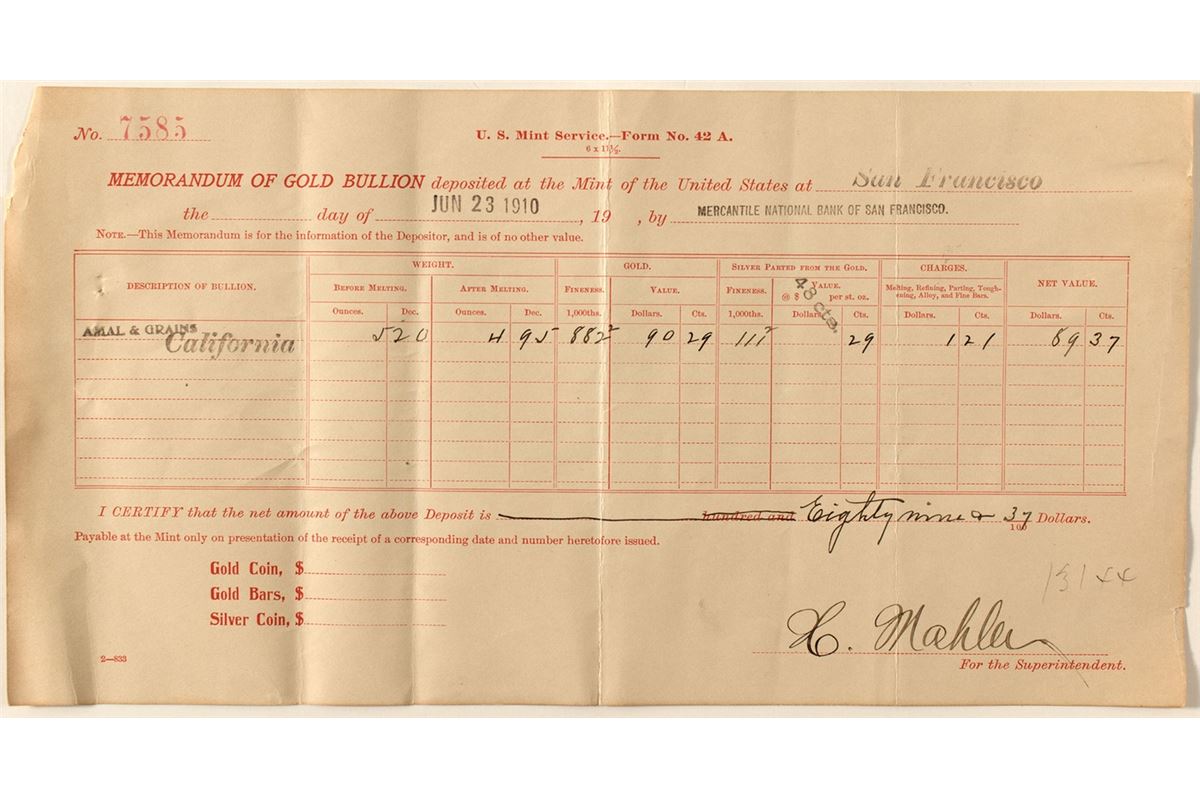 No. 7585
U. S. Mint Service.—Form No. 42 A.
6 x 11½.
MEMORANDUM OF GOLD BULLION deposited at the Mint of the United States at San Francisco
the day of JUN 23 1910, 19 , by MERCANTILE NATIONAL BANK OF SAN FRANCISCO.
NOTE.—This Memorandum is for the information of the Depositor, and is of no other value.
DESCRIPTION OF BULLION. WEIGHT. GOLD. SILVER PARTED FROM THE GOLD. CHARGES. NET VALUE.
BEFORE MELTING. AFTER MELTING. FINENESS. VALUE. FINENESS. VALUE. @ $ 48 cts. per st. oz. Melting, Refining, Parting, Toughening, Alloy, and Fine Bars.
Ounces. Dec. Ounces. Dec. 1,000ths. Dollars. Cts. 1,000ths. Dollars. Cts. Dollars. Cts. Dollars. Cts.
AMAL & GRAINS
California 5 20 4 95 882² 90 29 111² 29 1 21 89 37
I CERTIFY that the net amount of the above Deposit is hundred and Eighty nine & 37/100 Dollars.
Payable at the Mint only on presentation of the receipt of a corresponding date and number heretofore issued.
Gold Coin, $
Gold Bars, $
Silver Coin, $
H. Mahler
2—833
For the Superintendent.